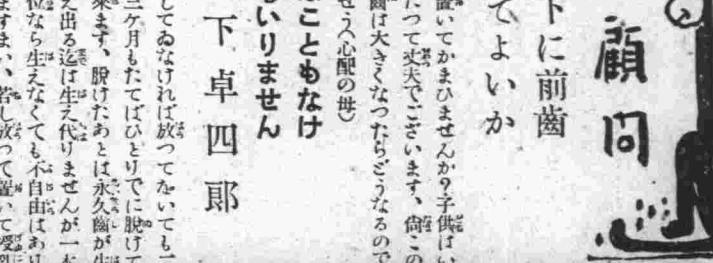 顧問
下に前齒
てよいか
置いてかまひませんか？子供はい
たつて丈夫でございます、尙この
齒は大きくなつたらどうなるので
せう（心配の母）
なこともなけ
いりません
下卓四郞
してゐなければ放つておいても一
三ケ月もたてばひとりでに脫けて
來ます、脫けたあとは永久齒が生
え出る迄は生え代りませんが、一本
位なら生えなくても不自由はあり
ますまい、若し放つて置いて